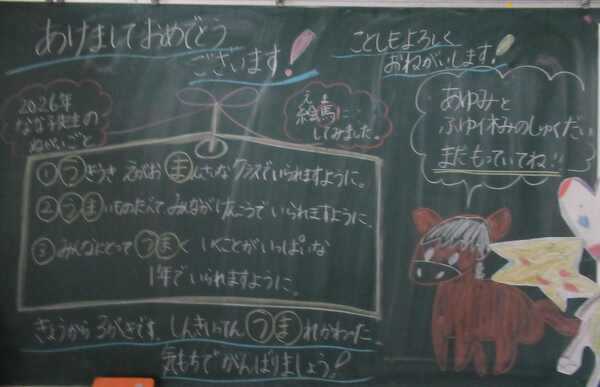 あけましておめでとう
ございます!
ことしもよろしく
おねがいします!
2026年
なな子先生の
ねがいごと
えま
絵馬に…
してみました。
あゆみと
ふゆ休みのしゅくだい
まだもっていてね!!
① えがお まんさいなクラスでいられますように。
② うまいものたべて、みんながけんこうでいられますように。
③ みんなにとって うまく いくことがいっぱいな
1年でいられますように。
きょうから3がっきです。しんきいってん うまれかわった
気もちでがんばりましょう!